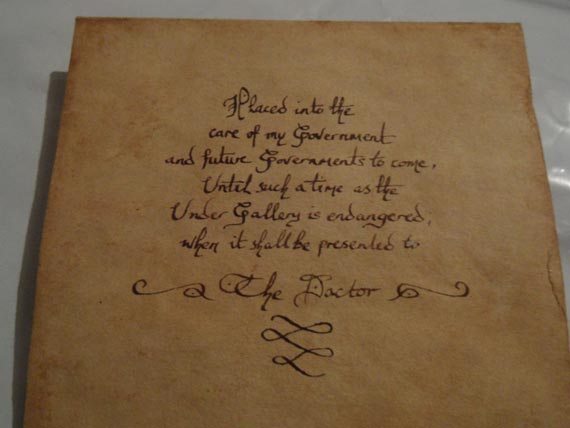 Placed into the
care of my Government
and future Governments to come,
Until such a time as the
Under Gallery is endangered,
when it shall be presented to
The Doctor